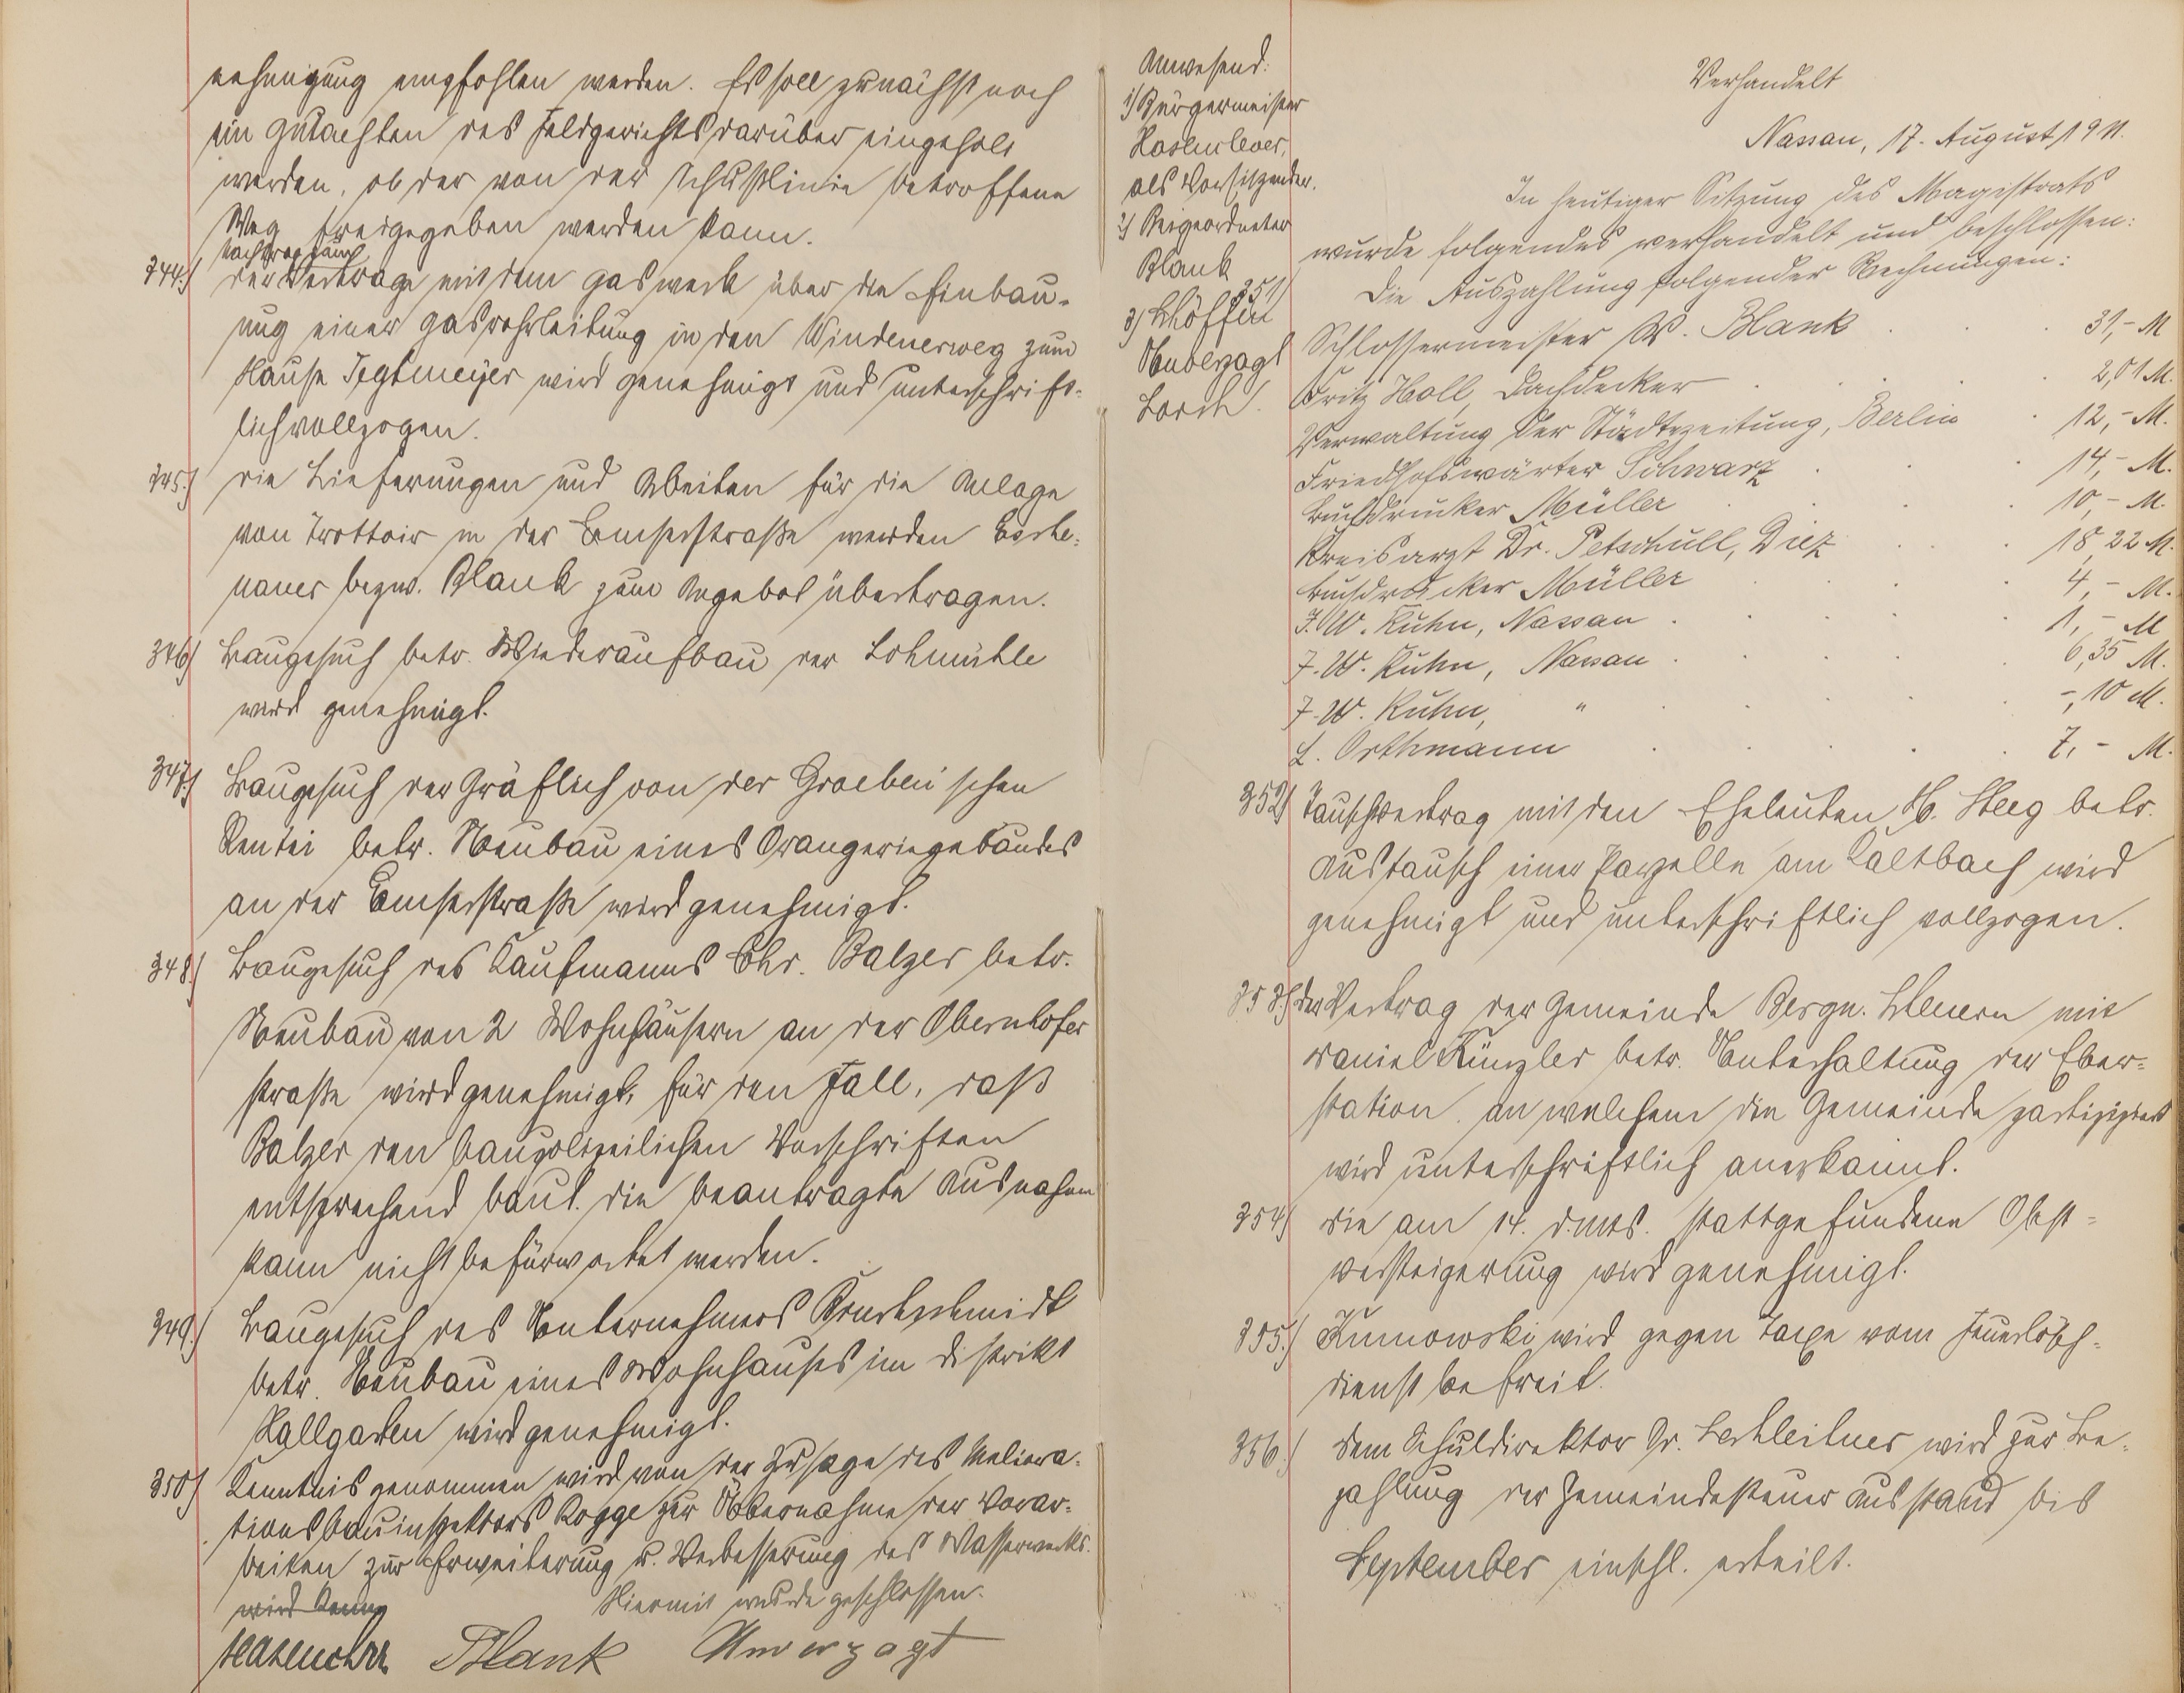 nehmigung empfohlen werden. Es soll zunächst noch
ein Gutachten des Feldgerichts darüber eingeholt
werden, ob der von der Schußlinie betroffene
Weg freigegeben werden kann.
Nachtrag zum
344.) der Vertrage mit dem Gaswerk über die Einbau-
ung einer Gasrohrleitung in den Windenerweg zum
Hause Tegtmeyer wird genehmigt und unterschrift-
lich vollzogen.
345.) Die Lieferungen und Arbeiten für die Anlage
von Trottoir in der Emserstraße werden
bezw. Blank zum Angebot übertragen.
346) Baugesuch betr. Wiederaufbau der Lohmühle
wird genehmigt.
347.) Baugesuch der Gräflich von der Groeben'schen
Rentei betr. Neubau eines Orangeriegebäudes
an der Emserstraße wird genehmigt.
348.) Baugesuch des Kaufmanns Chr. Balzer betr.
Neubau von 2 Wohnhäusern an der Obernhofer
straße wird genehmigt, für den Fall, daß
Balzer den baupolizeilichen Vorschriften
entsprechend baut. Die beantragte Ausnahme
kann nicht befürwortet werden.
349.) Baugesuch des Unternehmers
betr. Neubau eines Wohnhauses im Distrikt
Hallgarten wird genehmigt.
350) Kenntnis genommen wird von der Zusage des Meliora-
tionsbauinspektors Rogge zur Übernahme der Vorar-
beiten zur Erweiterung u. Verbesserung des Wasserwerks.
wird Kenn
Hiermit wurde geschlossen.
Hasenclever Blank Unverzagt
Anwesend:
1) Bürgermeister
Hasenclever,
als Vorsitzender.
2) Beigeordneter
Blank
3) Schöffen
Unverzagt
Lorch.
Verhandelt
Nassau, 17. August 1911.
In heutiger Sitzung des Magistrats
wurde folgendes verhandelt und beschlossen:
351) Die Auszahlung folgender Rechnungen:
Schlossermeister W. Blank . . . 31,- M
Fritz Holl, Dachdecker . . . . 2,01 M.
Verwaltung der Städtezeitung, Berlin . 12,- M.
Friedhofswärter Schwarz . . . 14,- M.
Buchdrucker Müller . . . 10,- M.
Kreisarzt Dr. Petschull, Diez . . . 18,22 M.
Buchdrucker Müller . . . 4,- M.
F. W. Kuhn, Nassau . . . . 1,- M
F. W. Kuhn, Nassau . . . . 6,35 M.
F. W. Kuhn, " . . . . -,10 M.
L. Orthmann . . . . . 7,- M.
352) Tauschvertrag mit den Eheleuten H. Steeg betr.
Austausch einer Parzelle am Kaltbach wird
genehmigt und unterschriftlich vollzogen.
353.) der Vertrag der Gemeinde Bergn. Scheuern mit
Daniel Künzler betr. Unterhaltung der Eber-
station, an welchem die Gemeinde partizipiert
wird unterschriftlich anerkannt.
354) Die am 14. d. Mts. stattgefundene Obst-
versteigerung wird genehmigt.
355.) Kunowski wird gegen Taxe vom Feuerlösch-
dienst befreit.
356.) Dem Schuldirektor Dr. Lechleitner wird zur Be-
zahlung der Gemeindesteuer Ausstand bis
September einschl. erteilt.